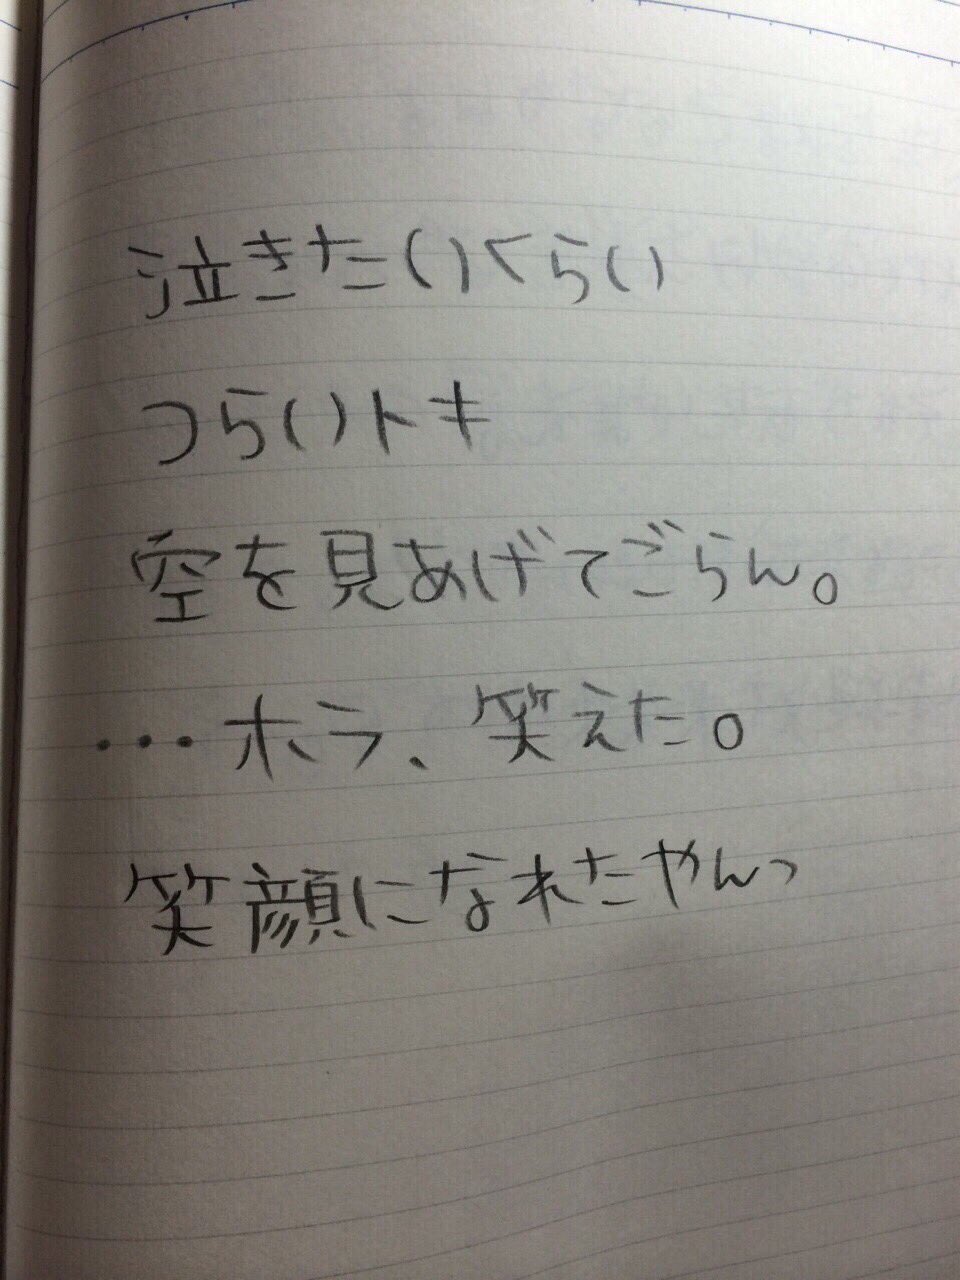 泣きたいくらい
つらいトキ
空を見あげてごらん。
…ホラ、笑えた。
笑顔になれたやんっ